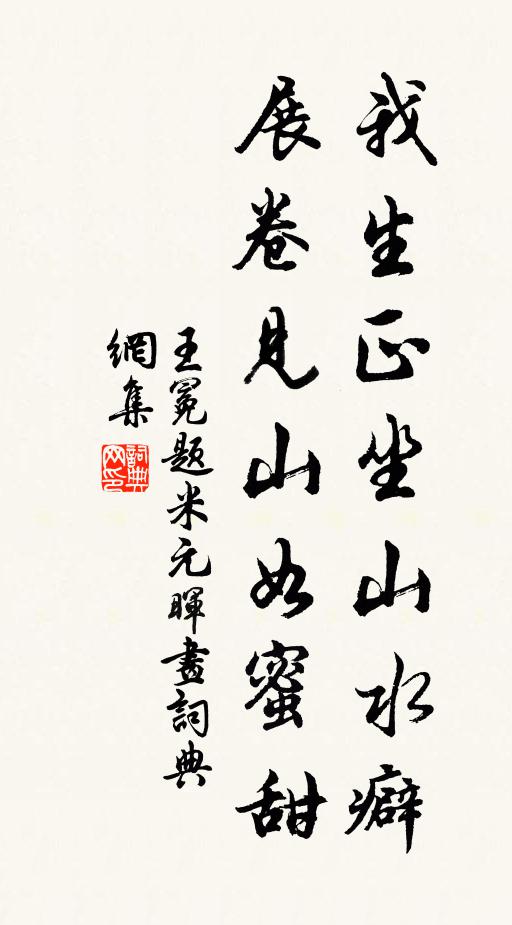 我生正坐山水癖
展卷見山如蜜甜
王冕題米元暉畫詞典
網集
詞典
网印